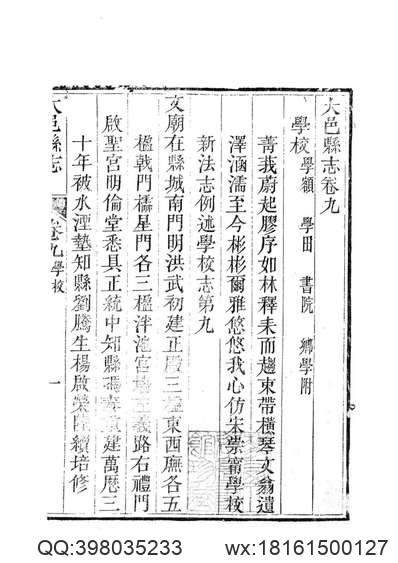 大邑縣志卷九
學校 學額 學田 書院 鄉學附
菁莪蔚起膠序如林釋耒而趨束帶橫琴文翁遺
澤涵濡至今彬彬爾雅悠悠我心仿宋崇甯學校
新法志例述學校志第九
文廟在縣城南門明洪武初建正殿三楹東西廡各五
楹戟門櫺星門各三楹泮池宮牆 義路右禮門
啟聖宮明倫堂悉具正統中知縣 建萬曆三
十年被水湮墊知縣劉騰生楊啟榮 續培修
大邑縣志 卷九 學校 一
QQ:398035233 wx:18161500127